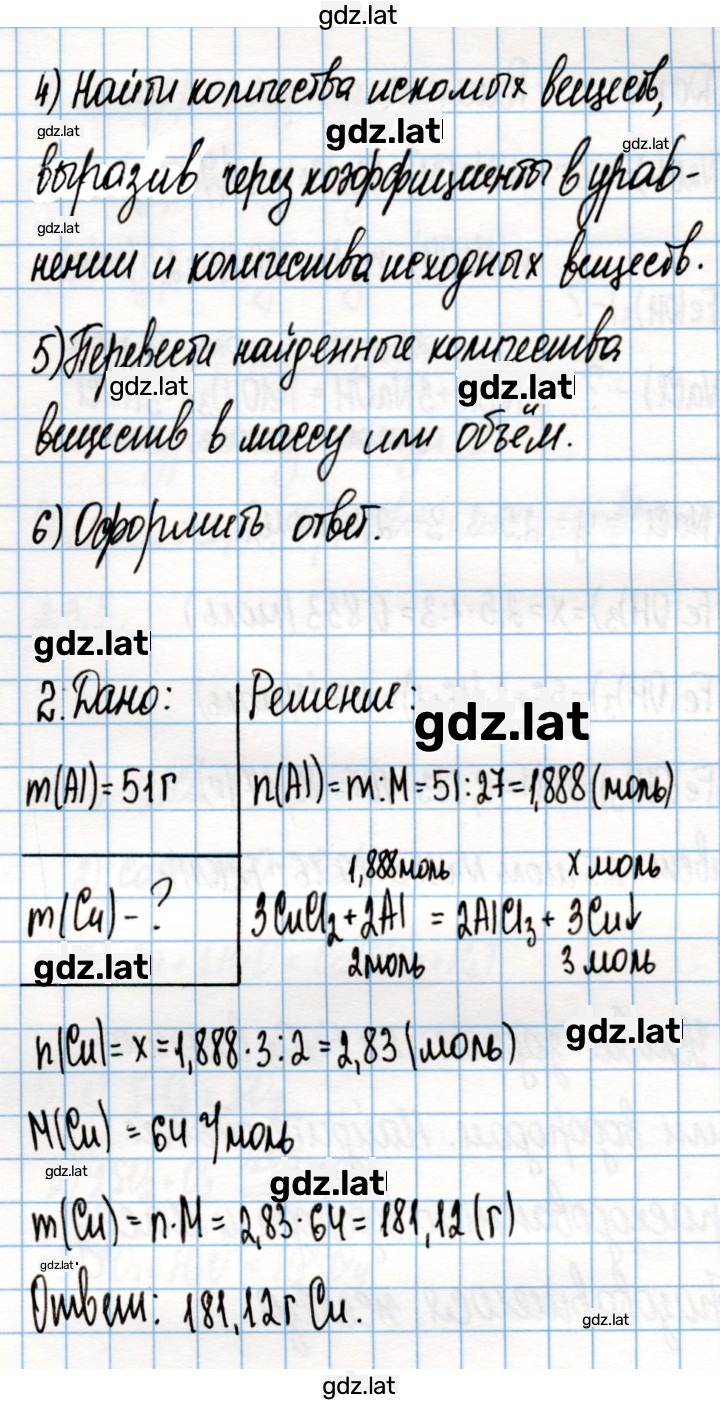 gdz.lat
4) Найти количества искомых веществ,
gdz.lat
gdz.lat
gdz.lat
выразив через коэффициенты в урав-
gdz.lat
нении и количества исходных веществ.
5) Перевести найденные количества
gdz.lat
gdz.lat
веществ в массу или объём.
6) Оформить ответ.
gdz.lat
2. Дано:
Решение:
gdz.lat
m(Al) = 51 г
n(Al) = m:M = 51:27 = 1,888 (моль)
1,888 моль x моль
m(Cu) - ?
3CuCl₂ + 2Al = 2AlCl₃ + 3Cu↓
gdz.lat
2 моль 3 моль
gdz.lat
n(Cu) = x = 1,888·3:2 = 2,83 (моль)
M(Cu) = 64 г/моль
gdz.lat
gdz.lat
m(Cu) = n·M = 2,83·64 = 181,12 (г)
gdz.lat
Ответ: 181,12 г Cu.
gdz.lat
gdz.lat